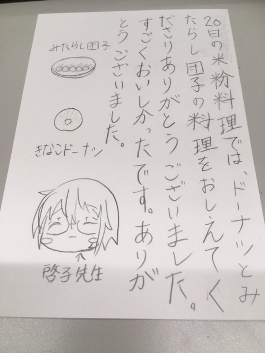 20日の米粉料理では、ドーナツとみ
たらし団子の料理をおしえてく
ださりありがとうございました。
すごくおいしかったです。ありが
とうございました。
みたらし団子
きなこドーナツ
啓子先生